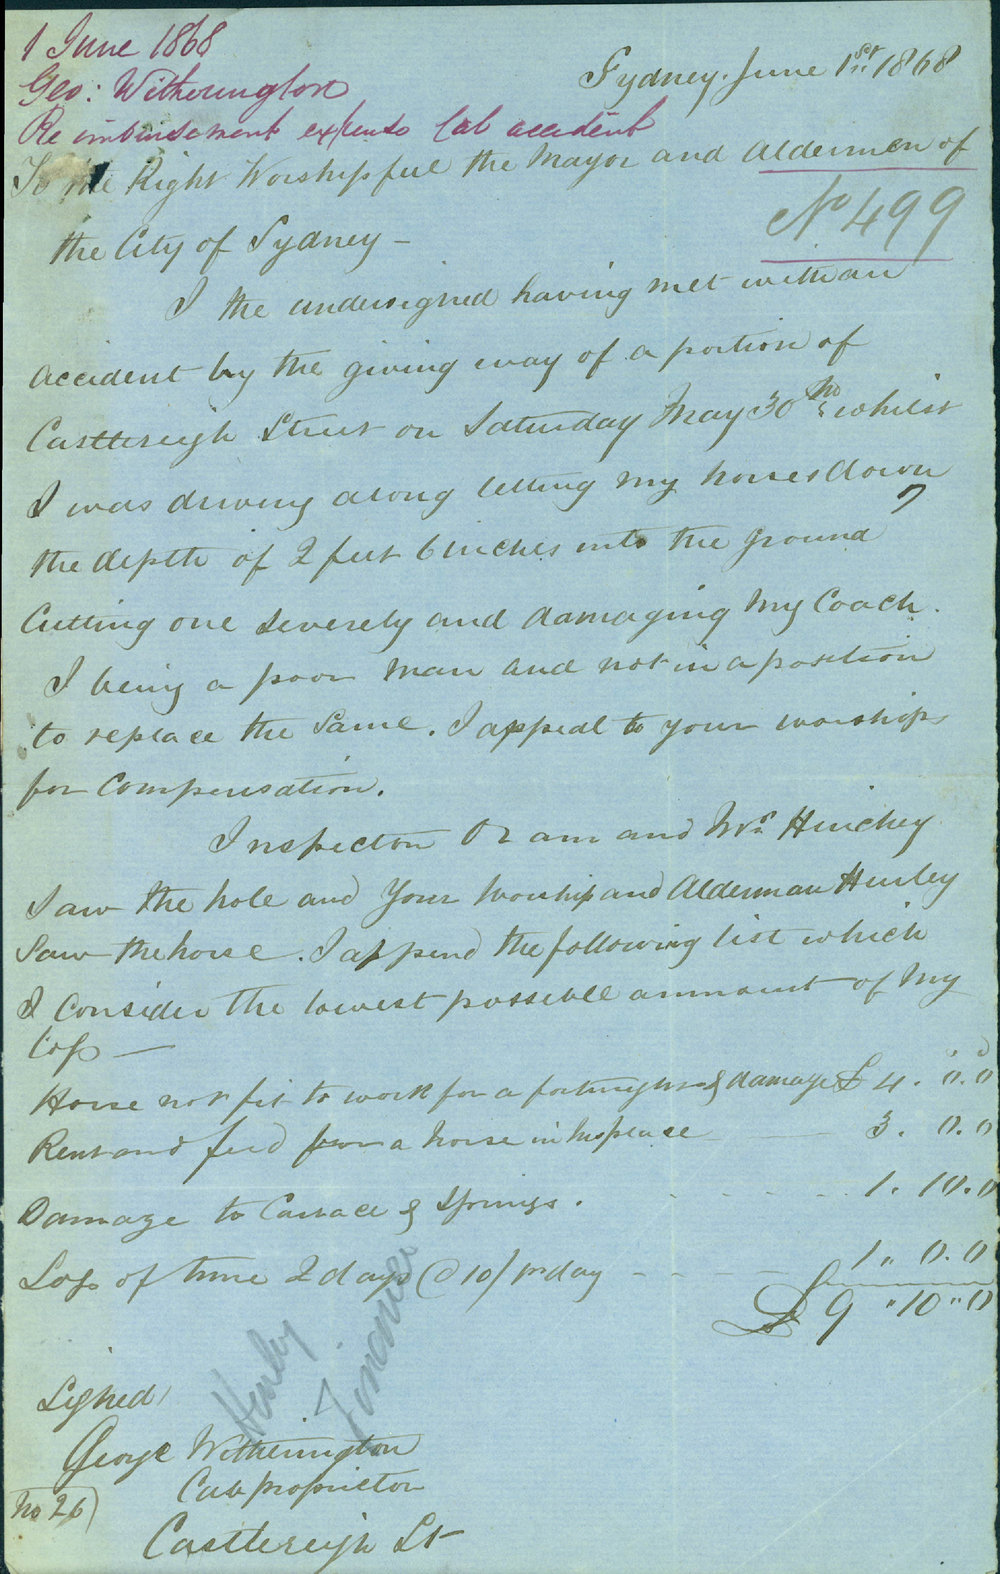 1 June 1868
Geo: Witherington
Re imbursement expenses Cab accident
Sydney. June 1st 1868
To the Right Worshipful the Mayor and Aldermen of
No 499
the City of Sydney –
I the undersigned having met with an
accident by the giving way of a portion of
Castlereigh Street on Saturday May 30th whilst
I was driving along letting my horses down
the depth of 2 feet 6 inches into the ground
Cutting one severely and damaging My Coach.
I being a poor man and not in a position
to replace the Same. I appeal to your worships
for Compensation.
Inspector Oram and Mrs Hinchey
Saw the hole and Your Worship and Alderman Hurley
Saw the horse. I append the following list which
I Consider the lowest possible ammount of My
loss —
Horse not fit to work for a fortnight & damage £ 4. 0. 0
Rent and feed for a horse in his place 3. 0. 0
Damage to Carrace & Springs. 1. 10. 0
Loss of time 2 days @ 10/ pr day 1 " 0. 0
£ 9 " 10 " 0
Henley
Finance
Signed
George Witherington
Cab proprietor
No 26
Castlereigh St